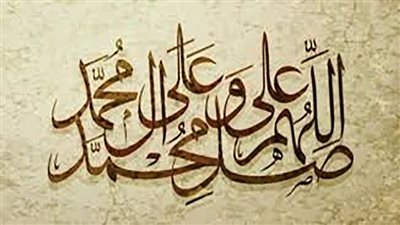 اللّهم صل علی محمد وعلی آل محمد